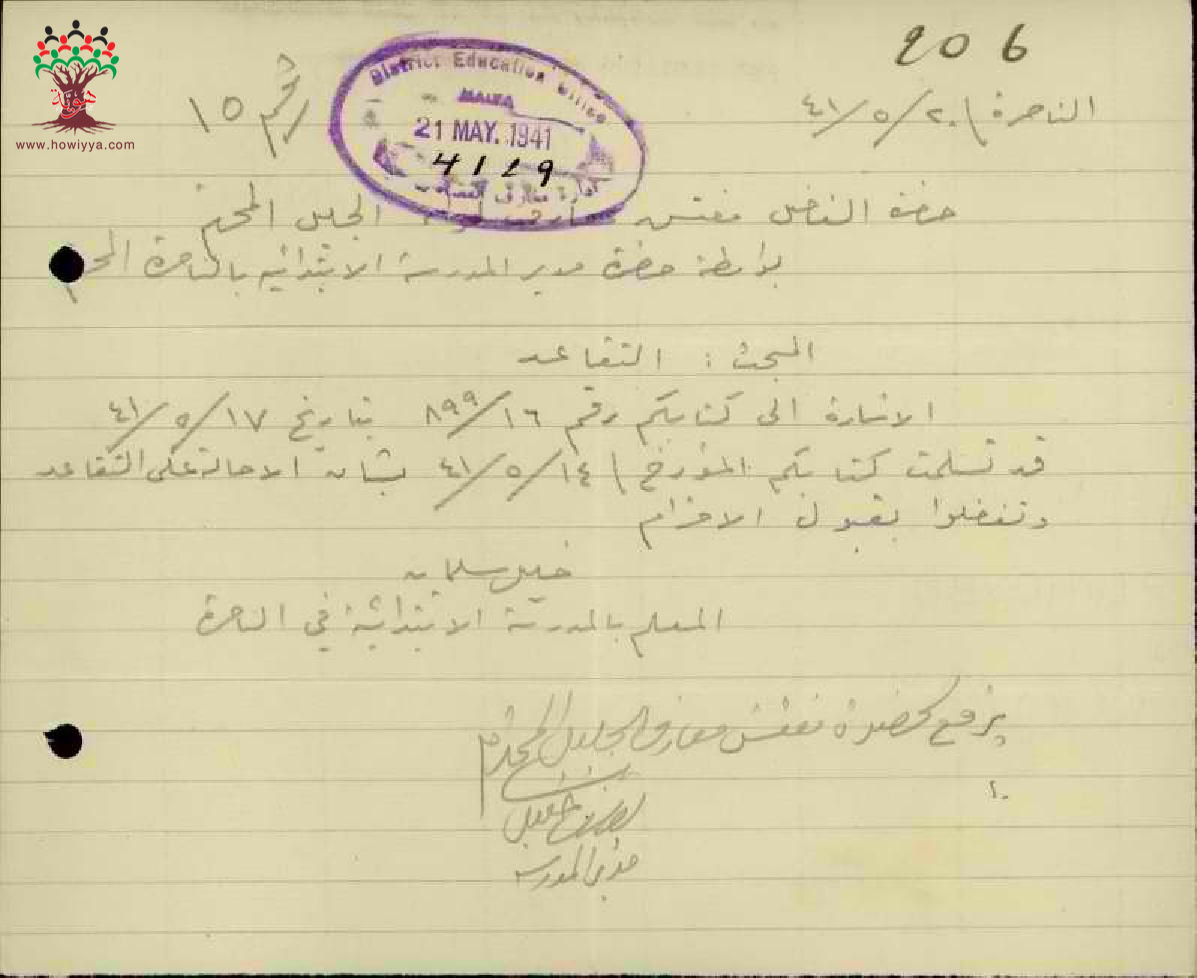 206
الناصرة \ ٢٠/٥/٤١
رقم ١٥
District Education Office
HAIFA
21 MAY. 1941
4119
حضرة الفاضل مفتش معارف لواء الجليل المحترم
بواسطة حضرة مدير المدرسة الابتدائية بالناصرة
المبحث : التقاعد
الاشارة الى كتابكم رقم ١٦/٨٩٩ بتاريخ ١٧/٥/٤١
قد تسلمت كتابكم المؤرخ \ ١٤/٥/٤١ بشأن الاحالة على التقاعد
وتفضلوا بقبول الاحترام
خليل سلمان
المعلم بالمدرسة الابتدائية في الناصرة
يرفع لحضرة مفتش معارف الجليل المحترم
خليل
مدير المدرسة
www.howiyya.com